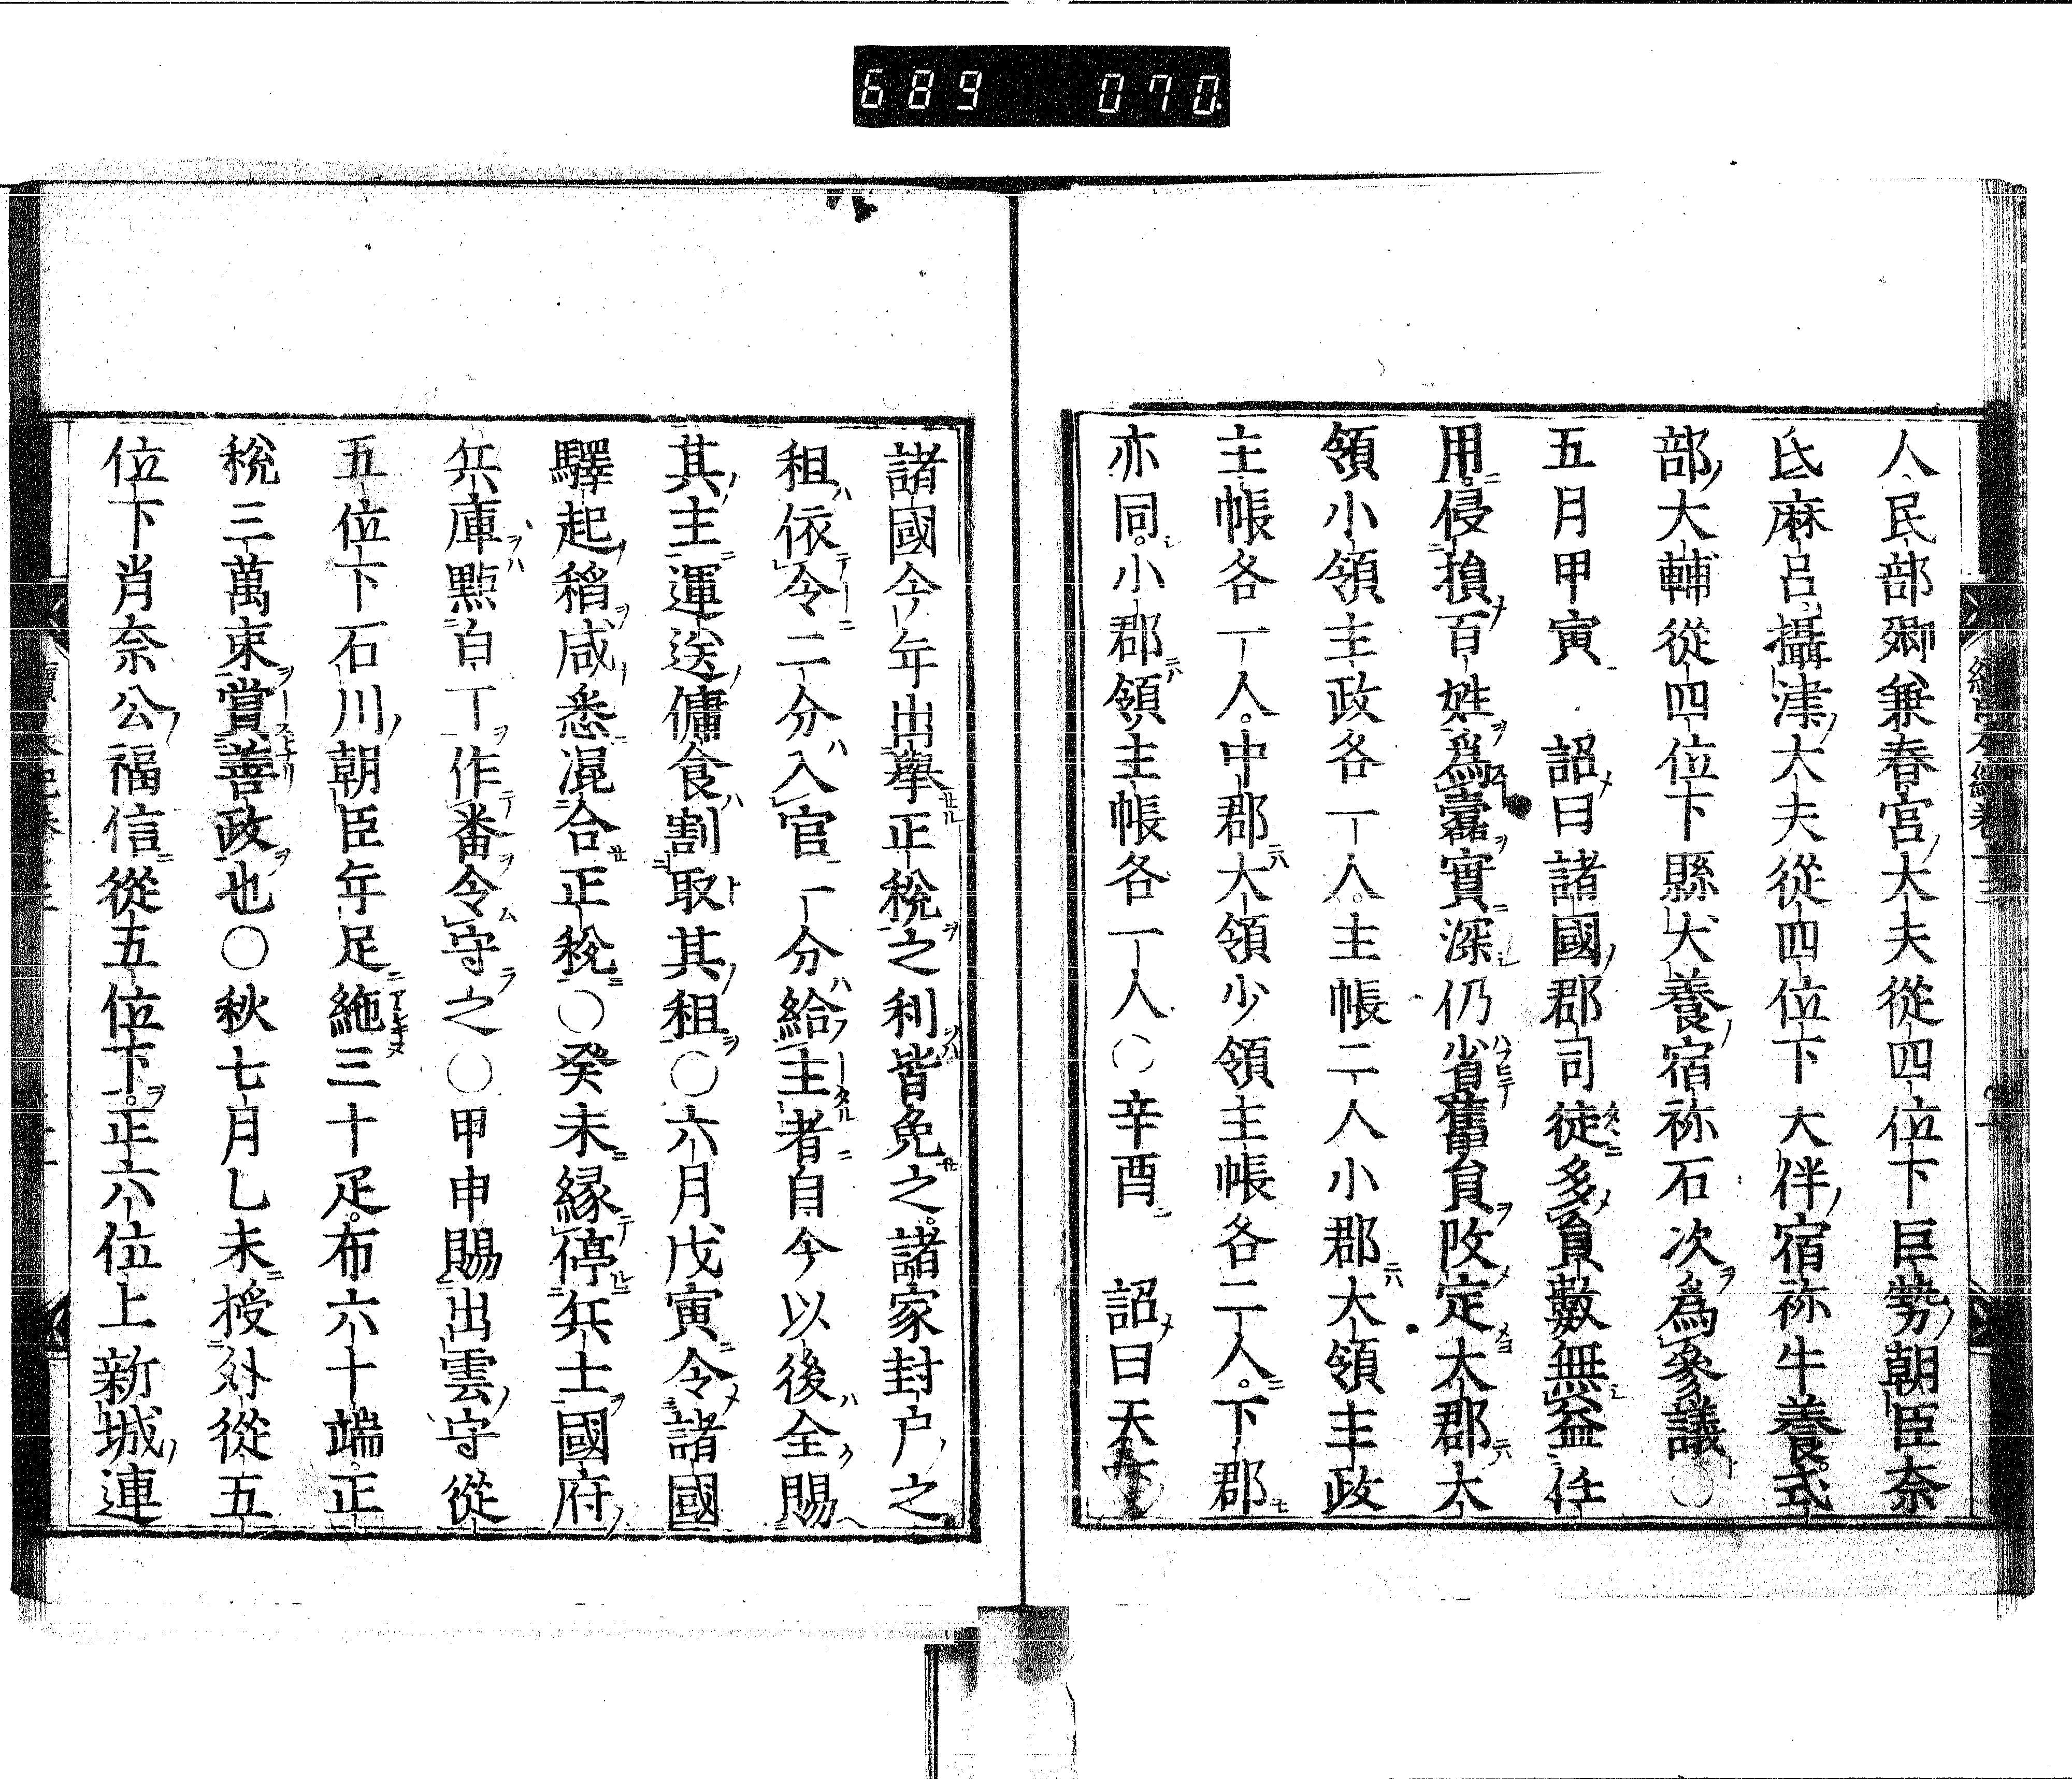 689 070
人民部卿兼春宮大夫從四位下巨勢朝臣奈
氐麻呂攝津大夫從四位下大伴宿祢牛養式
部大輔從四位下縣犬養宿祢石次為參議○
五月甲寅 詔曰諸國郡司徒多員數無益任
用侵損百姓為蠹實深仍省舊員改定大郡大
領小領主政各一人主帳二人小郡大領主政
主帳各一人中郡大領少領主帳各二人下郡
亦同小郡領主帳各一人○辛酉 詔曰天下
諸國今年出擧正稅之利皆免之諸家封戶之
租依令二分入官一分給主者自今以後全賜
其主運送傭食割取其租○六月戊寅令諸國
驛起稻咸悉混合正稅○癸未縁停兵士國府
兵庫點白丁作番令守之○甲申賜出雲守從
五位下石川朝臣年足絁三十疋布六十端正
稅三萬束賞善政也○秋七月乙未授外從五
位下肖奈公福信從五位下正六位上新城連